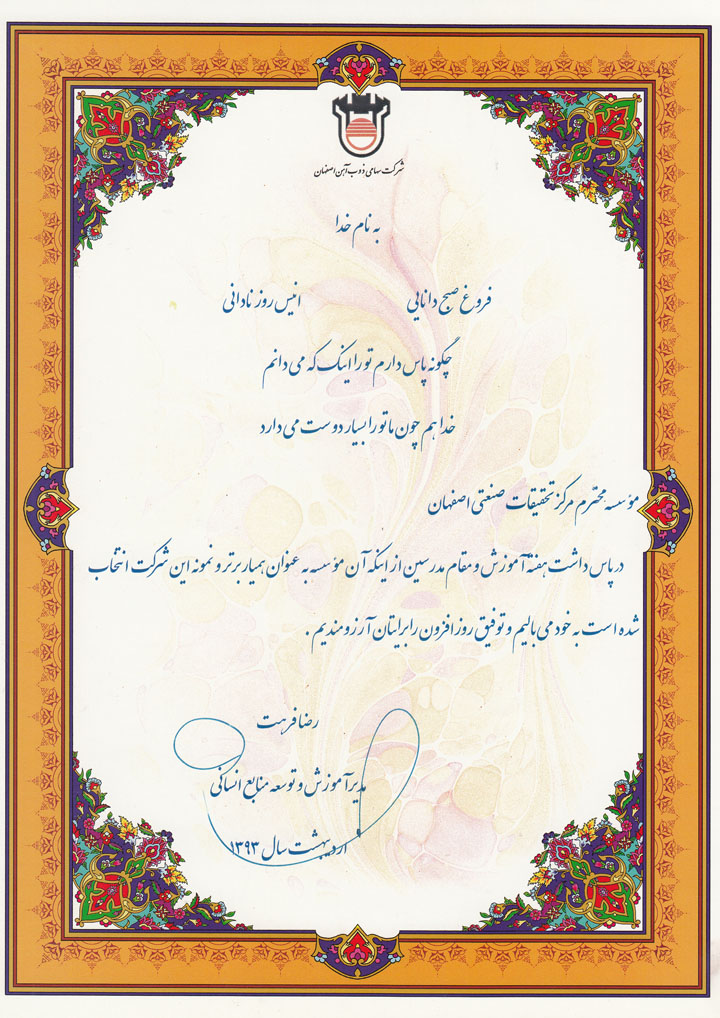 شرکت سهامی ذوب آهن اصفهان
به نام خدا
فروغ صبح دانایی انیس روز نادانی
چگونه پاس دارم تو را اینک که می دانم
خدا هم چون ما تو را بسیار دوست می دارد
مؤسسه محترم مرکز تحقیقات صنعتی اصفهان
در پاس داشت هفته آموزش و مقام مدرسین از اینکه آن مؤسسه به عنوان همیار برتر و نمونه این شرکت انتخاب
شده است به خود می بالیم و توفیق روز افزون را برایتان آرزومندیم .
رضا فرهت
مدیر آموزش و توسعه منابع انسانی
اردیبهشت سال ۱۳۹۳